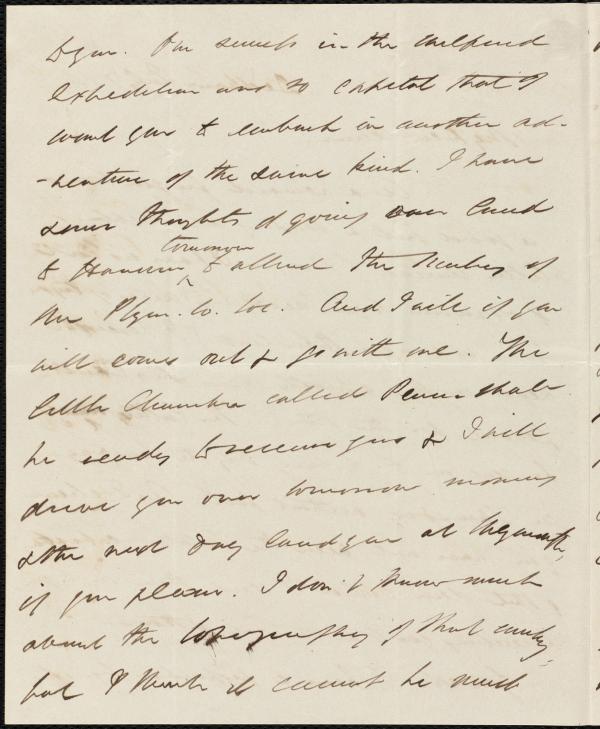 D gan. Our success in the Milford
Expedition was so capital that I
want you to embark in another ad-
-venture of the same kind. I have
some thoughts of going over land
to Hanover tomorrow & attend the meeting of
the Plym. Co. Soc. And I will if you
will come out & go with me. The
little Chamber called Peace shall
be ready to receive you & I will
drive you over tomorrow morning
& the next day land you at Weymouth,
if you please. I don't know much
about the topography of that country,
but I think it cannot be much